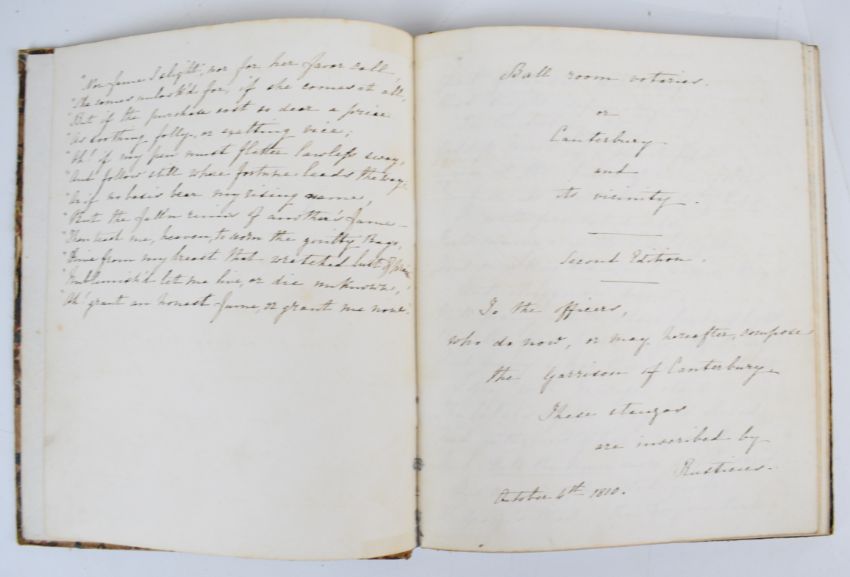 "Nor fame I slight, nor for her favor call,
"She comes unlook'd for, if she comes at all,
"But if the purchase cost so dear a price
"As soothing folly, or exalting vice;
"Oh! if my pen must flatter lawless sway,
"And follow still where fortune leads the way,
"Or if no basis bear my rising name,
"But the fall'n ruins of another's fame—
"Then teach me, heaven, to scorn the guilty bays,
"Drive from my breast that wretched lust of praise
"Unblemish'd let me live, or die unknown,
"Oh! grant an honest fame, or grant me none."
Ball room votaries.
or
Canterbury
and
its vicinity.
Second Edition.
To the officers,
who do now, or may hereafter, compose
the Garrison of Canterbury
These stanzas
are inscribed by
Rusticus.
October 6th 1810.